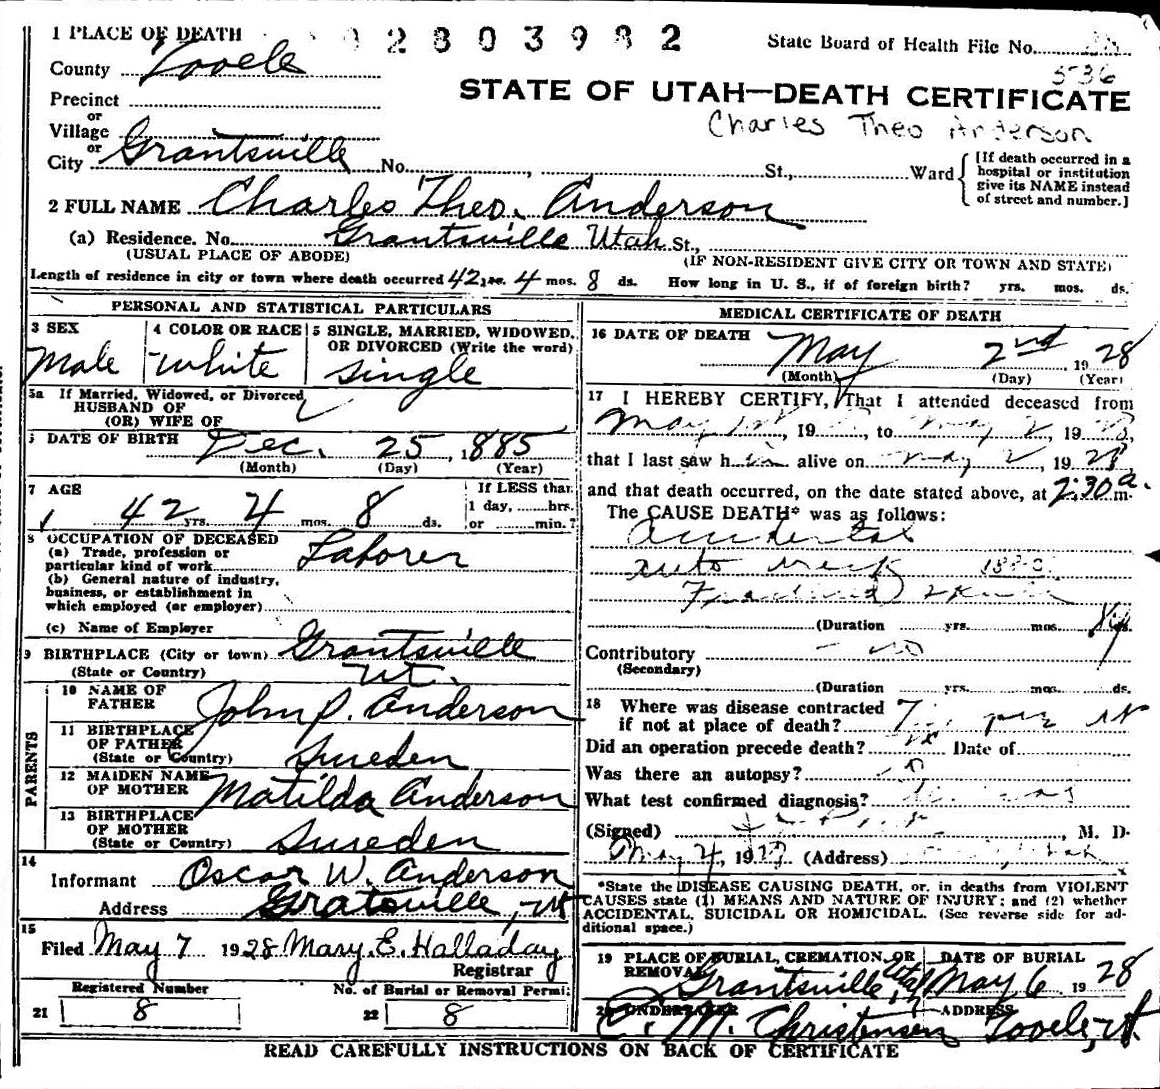 1 PLACE OF DEATH
2803982
State Board of Health File No.
536
County Tooele
STATE OF UTAH—DEATH CERTIFICATE
Charles Theo Anderson
Precinct
or
Village
or
City Grantsville No. , St., Ward
[If death occurred in a hospital or institution give its NAME instead of street and number.]
2 FULL NAME Charles Theo. Anderson
(a) Residence. No. Grantsville Utah St.,
(USUAL PLACE OF ABODE) (IF NON-RESIDENT GIVE CITY OR TOWN AND STATE)
Length of residence in city or town where death occurred 42 yrs. 4 mos. 8 ds. How long in U. S., if of foreign birth? yrs. mos. ds.
PERSONAL AND STATISTICAL PARTICULARS
3 SEX
Male
4 COLOR OR RACE
White
5 SINGLE, MARRIED, WIDOWED, OR DIVORCED (Write the word)
Single
5a If Married, Widowed, or Divorced
HUSBAND OF
(OR) WIFE OF
6 DATE OF BIRTH Dec. 25, 1885
(Month) (Day) (Year)
7 AGE
42 yrs. 4 mos. 8 ds.
If LESS than
1 day, hrs.
or min.?
8 OCCUPATION OF DECEASED
(a) Trade, profession or
particular kind of work Laborer
(b) General nature of industry,
business, or establishment in
which employed (or employer)
(c) Name of Employer
9 BIRTHPLACE (City or town) Grantsville
(State or Country) Ut.
PARENTS
10 NAME OF FATHER John P. Anderson
11 BIRTHPLACE OF FATHER
(State or Country) Sweden
12 MAIDEN NAME OF MOTHER Matilda Anderson
13 BIRTHPLACE OF MOTHER
(State or Country) Sweden
14
Informant Oscar W. Anderson
Address Gratsville, Ut
15
Filed May 7 1928 Mary E. Halladay
Registrar
Registered Number
21 8
No. of Burial or Removal Permit
22 8
MEDICAL CERTIFICATE OF DEATH
16 DATE OF DEATH
May 2nd 1928
(Month) (Day) (Year)
17 I HEREBY CERTIFY, That I attended deceased from
May 1st, 19 , to May 2, 1928,
that I last saw him alive on May 2, 1928
and that death occurred, on the date stated above, at 2:30 a. m.
The CAUSE DEATH* was as follows:
Accidental
Auto
(Duration yrs. mos.
Contributory no
(Secondary)
(Duration yrs. mos. ds.
18 Where was disease contracted
if not at place of death?
Did an operation precede death? Date of
Was there an autopsy? no
What test confirmed diagnosis?
(Signed) , M. D.
May 4, 19 (Address) Utah
*State the DISEASE CAUSING DEATH, or, in deaths from VIOLENT
CAUSES state (1) MEANS AND NATURE OF INJURY; and (2) whether
ACCIDENTAL, SUICIDAL OR HOMICIDAL. (See reverse side for ad-
ditional space.)
19 PLACE OF BURIAL, CREMATION, OR REMOVAL
Grantsville Utah
DATE OF BURIAL
May 6 1928
20 UNDERTAKER
C. M. Christensen
ADDRESS
Tooele, Ut.
READ CAREFULLY INSTRUCTIONS ON BACK OF CERTIFICATE